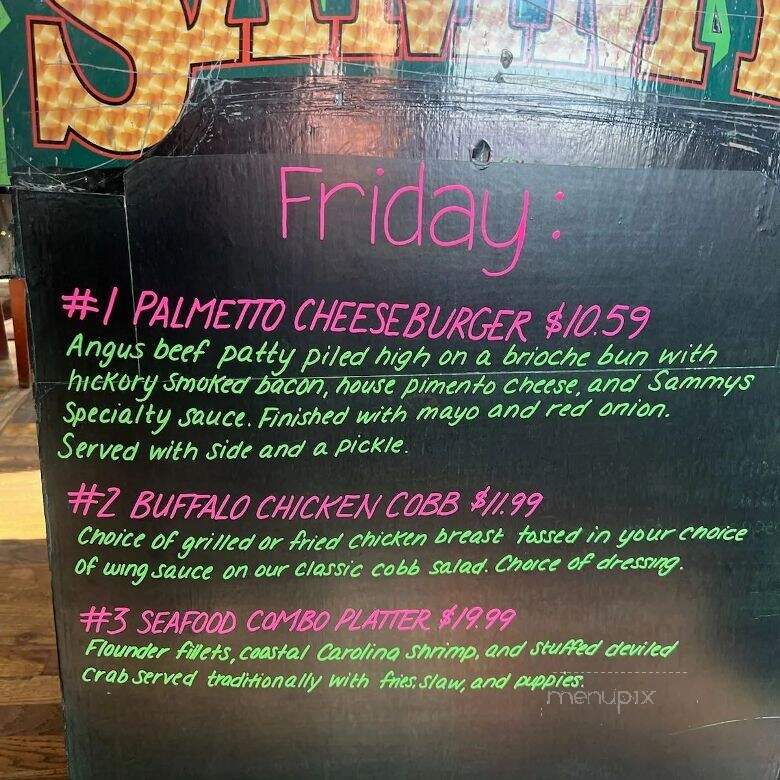 Friday:
#1 PALMETTO CHEESEBURGER $10.59
Angus beef patty piled high on a brioche bun with
hickory smoked bacon, house pimento cheese, and Sammys
Specialty sauce. Finished with mayo and red onion.
Served with side and a pickle.
#2 BUFFALO CHICKEN COBB $11.99
Choice of grilled or fried chicken breast tossed in your choice
of wing sauce on our classic cobb salad. Choice of dressing.
#3 SEAFOOD COMBO PLATTER $19.99
Flounder fillets, coastal Carolina shrimp, and stuffed deviled
crab served traditionally with fries, slaw, and puppies.
menupix